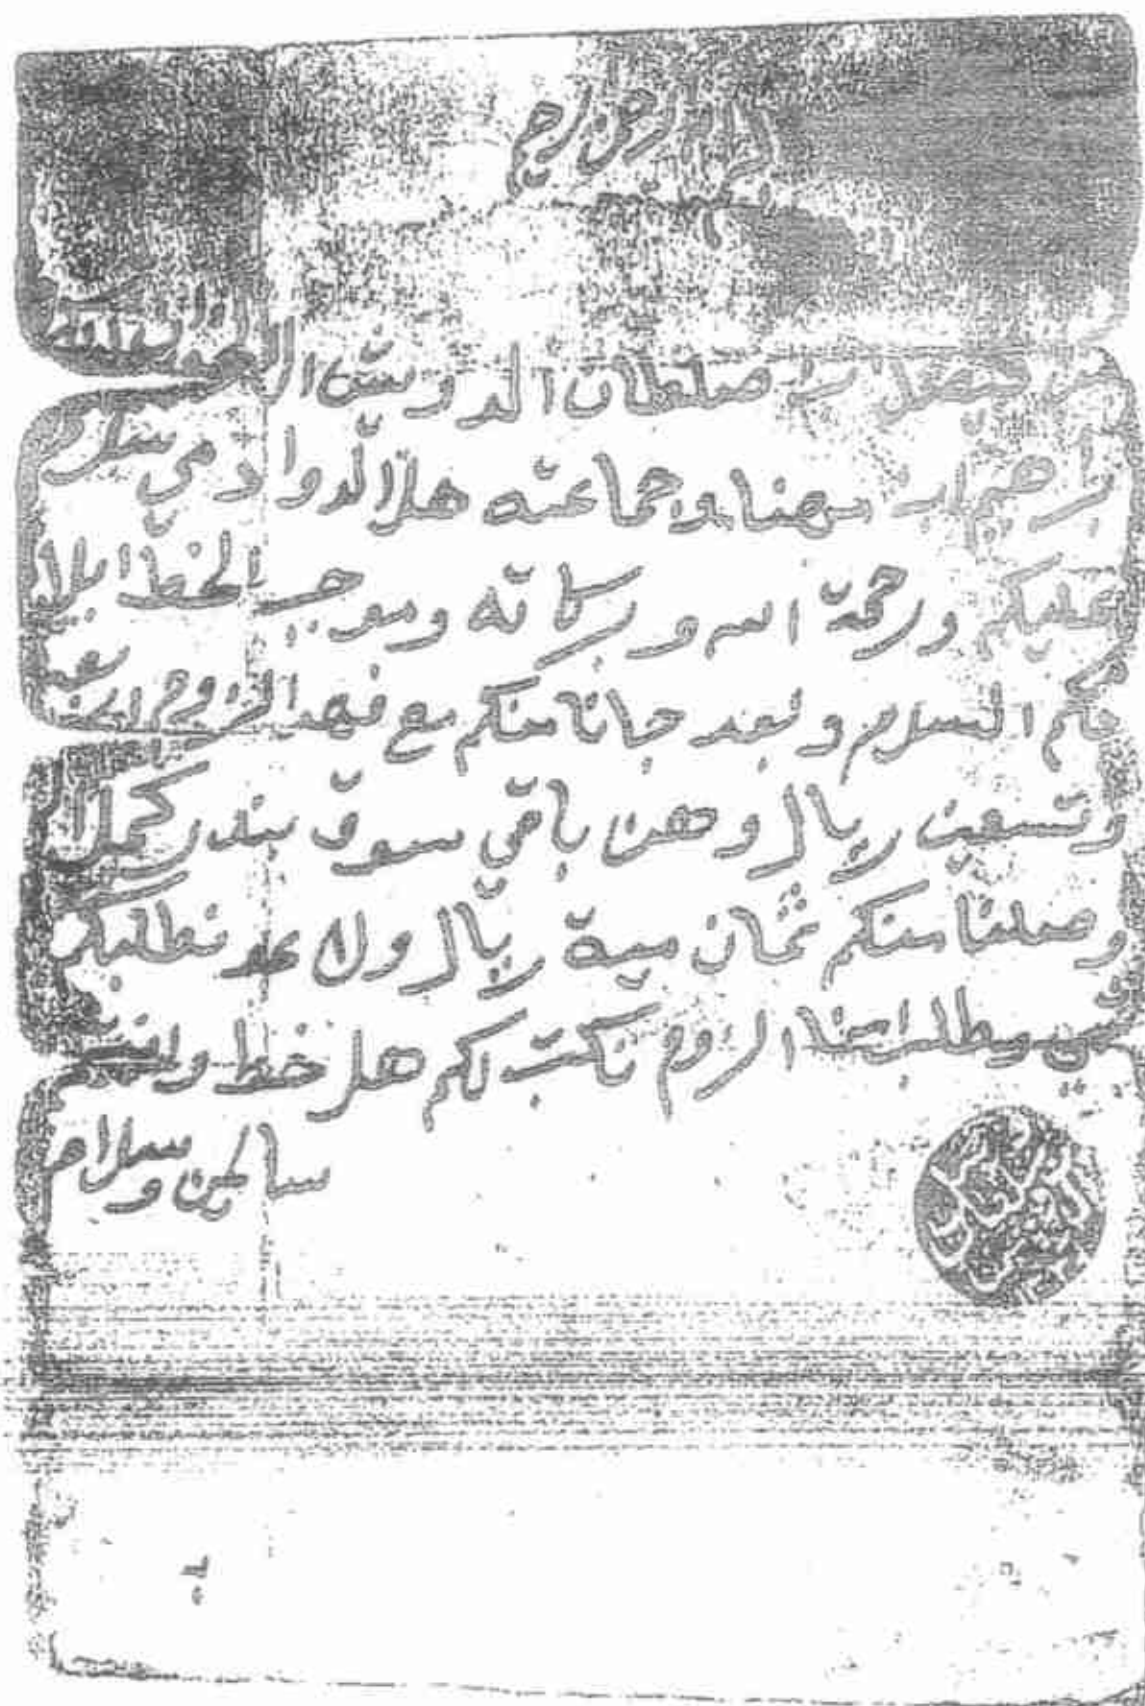 بسم الله الرحمن الرحيم
من فيصل ابن صلطان الدويش الا
ابن مهنا وجماعته هل الدوادمي سلام
عليكم ورحمة الله وبركاته وموجب الخط ابلا
غكم السلام وبعد جانا منكم مع فهد الزوم
وتسعين ريال وهن باقي سوق بندر كملن
وصلنا منكم ثمان مية ريال ولا عد نطلبكم
شي وطلب منا الزوم نكتب لكم هل خط وانتم
سالمين وسلام